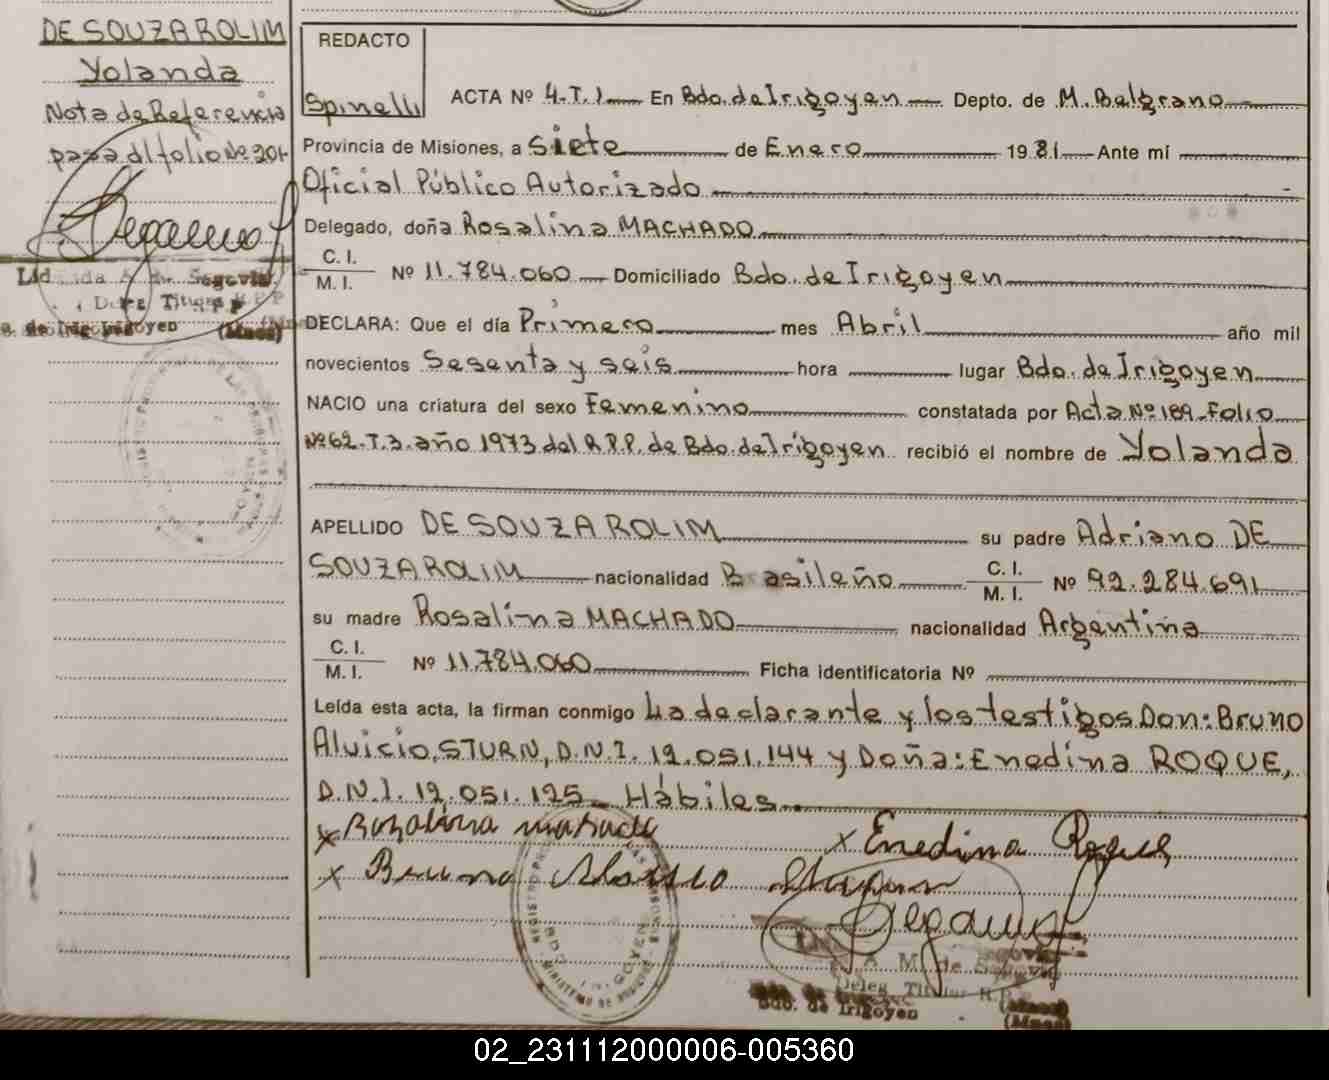 DE SOUZA ROLIM
Yolanda
Nota de Referencia
pasa al folio Nº 201
REDACTO
Spinelli
ACTA Nº 4-T.1 En Bdo. de Irigoyen Depto. de M. Belgrano
Provincia de Misiones, a Siete de Enero 1981 Ante mí
Oficial Público Autorizado
Delegado, doña Rosalina MACHADO
C. I.
M. I. Nº 11.784.060 Domiciliado Bdo. de Irigoyen
DECLARA: Que el día Primero mes Abril año mil
novecientos Sesenta y seis hora lugar Bdo. de Irigoyen
NACIO una criatura del sexo Femenino constatada por Acta Nº 189-Folio
Nº 62-T.3-año 1973 del R.P.P. de Bdo. de Irigoyen recibió el nombre de Yolanda
APELLIDO DE SOUZA ROLIM su padre Adriano DE
SOUZA ROLIM nacionalidad Brasileño C. I.
M. I. Nº 92.284.691
su madre Rosalina MACHADO nacionalidad Argentina
C. I.
M. I. Nº 11.784.060 Ficha identificatoria Nº
Leída esta acta, la firman conmigo La declarante y los testigos Don: Bruno
Aluicio, STURN, D.N.I. 12.051.144 y Doña: Enedina ROQUE,
D.N.I. 12.051.125 Hábiles
x Rozalina machado
x Enedina Roque
x Bruno
A. M. de Segovia
Deleg. Titular R.P.P.
Bdo. de Irigoyen (Mnes)
02_231112000006-005360